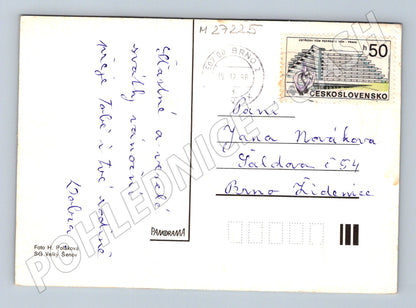 M 27225
Šťastné a veselé
svátky vánoční
přeje Tobě i Tvé rodině
602 00 BRNO 2
h 50
ČESKOSLOVENSKO
Paní
Jana Nováková
Šaldova č 54
Brno Židenice
PANORAMA
Foto H. Poláková
SČG Velký Šenov
POHLEDNICE - CASH